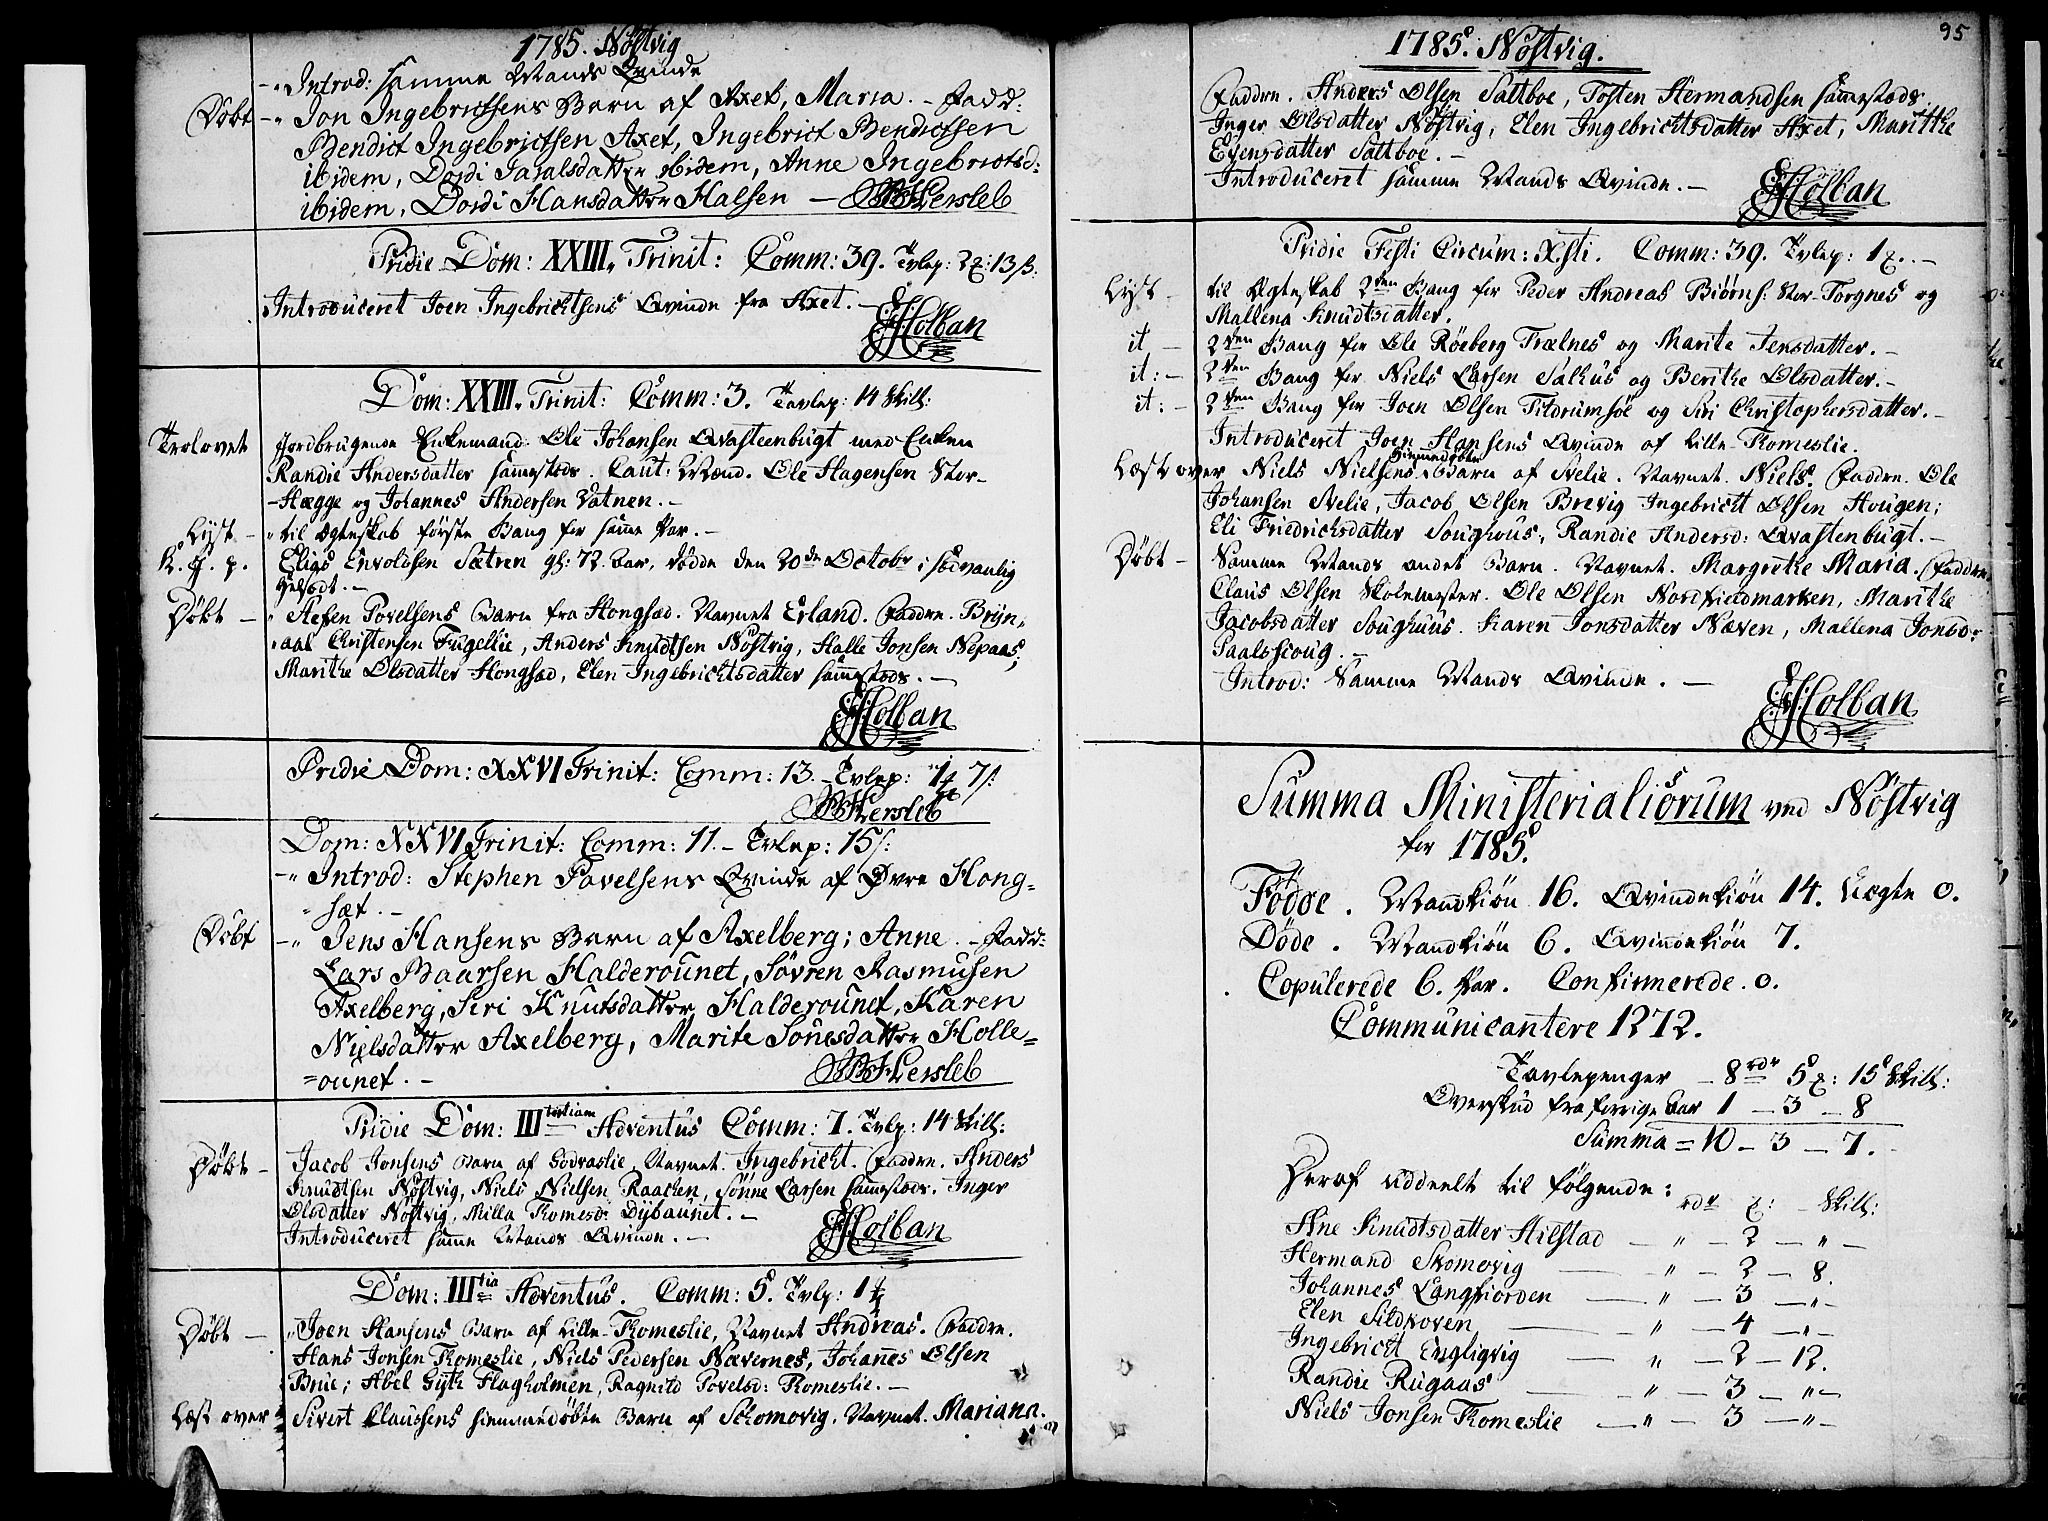 1785. Nöstvig
-" Introd: samme Mands Qvinde
Döbt -" Jon Ingebrictsens Barn af Axet, Maria. - Fadd:
Bendict Ingebrictsen Axet, Ingebrict Bendictsen
ibidem, Dordi ibidem, Anne Ingebrictsd:
ibidem, Dordi Hansdatter Halsen — Hersleb
Pridie Dom: XXIII. Trinit: Comm: 39. Tvlep: 2 : 13 ß:
Introduceret Joen Ingebrichtsens Qvinde fra Axet. —
Holban
Dom: XXIII. Trinit: Comm: 3. Tavlep: 14 Skill:
Trolovet Jordbrugende Enkemand Ole Johansen Qvasteenbugt med Enken
Randie Andersdatter sammestæds. Caut: Mænd. Ole Hagensen Stor-
-Hægge og Johannes Andersen Vatnen. -
Lyst - " til Ægteskab förste Gang for samme Par. -
K. J. p. Elias Envoldsen Sætren gl: 72 Aar, dödde den 20de Octobr i sædvanlig
Döbt - " Stefen Povelsens Barn fra Hongsæd. Navnet Erland. Faddre. Brÿn-
Christensen Fugellie, Anders Knudtsen Nöstvig, Halle Jonsen Nepaas,
Marithe Olsdatter Hongsæd, Elen Ingebrichtsdatter sammestæds. —
Holban
Pridie Dom: XXVI Trinit: Comm: 13. - Tvlep: 1 7 ß:
Hersleb
Dom: XXVI Trinit: Comm: 11. - Tvlep: 15 ß:
-" Introd: Stephen Pavelsens Qvinde af Øvre Hong-
-sæt. -
Döbt -" Jens Hansens Barn af Axelberg; Anne. - Fadd-
Lars Baarsen Halderounet, Sövren Rasmusen
Axelberg, Siri Knutsdatter Halderounet, Karen
Nielsdatter Axelberg, Marite Jonesdatter Holle=
=ounet. - Hersleb
Pridie Dom: IIItertiam Adventus Comm: 7. Tvlp: 14 Skill:
Döbt - Jacob Jonsens Barn af Godvaslie, Navnet. Ingebricht. Faddre. Anders
Knudtsen Nöstvig, Niels Nielsen Raacken, Sönne Larsen sammestæds. Inger
Olsdatter Nöstvig, Milla Thomesd: Dybaunet. -
Introduceret samme Mands Qvinde. -
Holban
Dom: IIItia Adventus. Comm: 5. Tvlp: 1
Döbt - " Joen Hansens Barn af Lille-Thomeslie, Navnet Andreas. Faddre.
Hans Jonsen Thomeslie, Niels Pedersen Nævernes, Johannes Olsen
Brue; Abel Gÿth Flagholmen, Ragnild Povelsd: Thomeslie. -
Læst over Sivert Claussens hiemmedöbte Barn af Schomovig. Navnet. Mariana.
95
1785. Nöstvig.
Faddre. Anders Olsen Saltboe, Tosten Hermandsen sammestæds
Inger Olsdatter Nöstvig, Elen Ingebrichtsdatter Axet, Marithe
Evensdatter Saltboe. -
Introduceret samme Mands Qvinde. -
Holban
Pridie Festi Circum: Xsti. Comm: 39. Tvlep: 1 . -
Lyst - til Ægteskab 2den Gang for Peder Andreas Biörns: Stor-Torgnes og
Mallena Knudtsdatter.
it - 2den Gang for Ole Röeberg Trælnes og Marite Jensdatter. -
it: - 2den Gang for Niels Larsen Salhus og Berithe Olsdatter. -
it: - 2den Gang for Joen Olsen Tildrumsöe og Siri Christophersdatter. -
Introduceret Joen Hansens Qvinde af Lille-Thomeslie.
Læst over Niels Nielsens hiemmedöbte Barn af Stelie. Navnet. Niels. Faddre. Ole
Johansen Stelie, Jacob Olsen Brevig Ingebricht Olsen Hougen;
Eli Friedrichsdatter Soughous, Randie Andersd: Qvastenbugt. -
Döbt - Samme Mands andet Barn. Navnet. Margrethe Maria. Faddre.
Claus Olsen Skolemester. Ole Olsen Nordhindmarken, Marithe
Jacobsdatter Soughuus. Karen Jonsdatter Næven, Mallena Jonsd:
Paalsscoug. -
Introd: Samme Mands Qvinde. —
Holban
Summa Ministerialiorum ved Nöstvig
for 1785.
Födde. Mandkiön 16. Qvindekiön 14. Uægte 0.
Döde. Mandkiön 6. Qvindekiön 7.
Copulerede 6. Par. Confirmerede. 0.
Communicantere 1272.
Tavlepenger - 8 rdr 5 : 15 Skill:
Overskud fra forrige Aar 1 - 3 - 8
Summa = 10 - 3 - 7.
Heraf uddeelt til fölgende:
rdr : - Skill:
Ane Knudtsdatter Hilstad — " — 2 — " —
Hermand Skomovig — " — 2 — 8.
Johannes Langfiorden — " — 3 — " -
Elen Sildhoven — " — 4 — " -
Ingebricht Engligvig — " — 2 — 12.
Randie Rugaas — " — 3 — " -
Niels Jonsen Thomeslie — " — 3 — " -